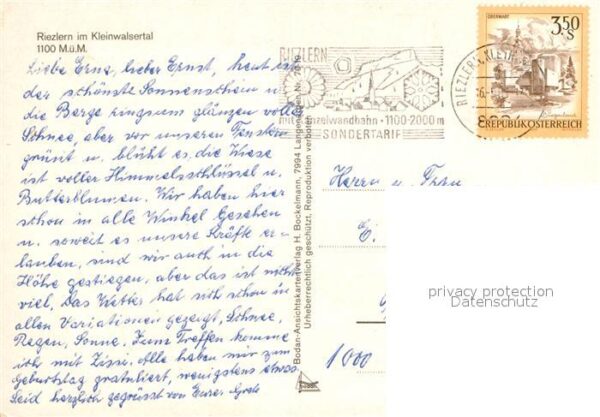 Riezlern im Kleinwalsertal
1100 M.ü.M.
Liebe Erna, lieber Ernst, heute ist
der schönste Sonnenschein u.
die Berge ringsum glänzen voller
Schnee, aber vor unseren Fenstern
grünt u. blüht es, die Wiese
ist voller Himmelsschlüssel u.
Butterblumen. Wir haben hier
schon in alle Winkel gesehen
u. soweit es unsere Kräfte er-
lauben, sind wir auch in die
Höhe gestiegen, aber das ist nicht
viel. Das Wetter hat sich schon in
allen Variationen gezeigt, Schnee,
Regen, Sonne. Zum Treffen komme
ich mit Zissi. Alle haben mir zum
Geburtstag gratuliert, wenigstens etwas
Seid herzlich gegrüsst von Eurer Grete
Bodan-Ansichtskartenverlag H. Bockelmann, 7994 Langenargen, Nr.
Urheberrechtlich geschützt, Reproduktion verboten
RIEZLERN
zelwandbahn · 1100-2000 m
SONDERTARIF
RIEZLERN, KLEIN
OBERWART
3.50
S
Burgenland
REPUBLIK ÖSTERREICH
Herrn u. Frau
E.
1000
privacy protection
Datenschutz